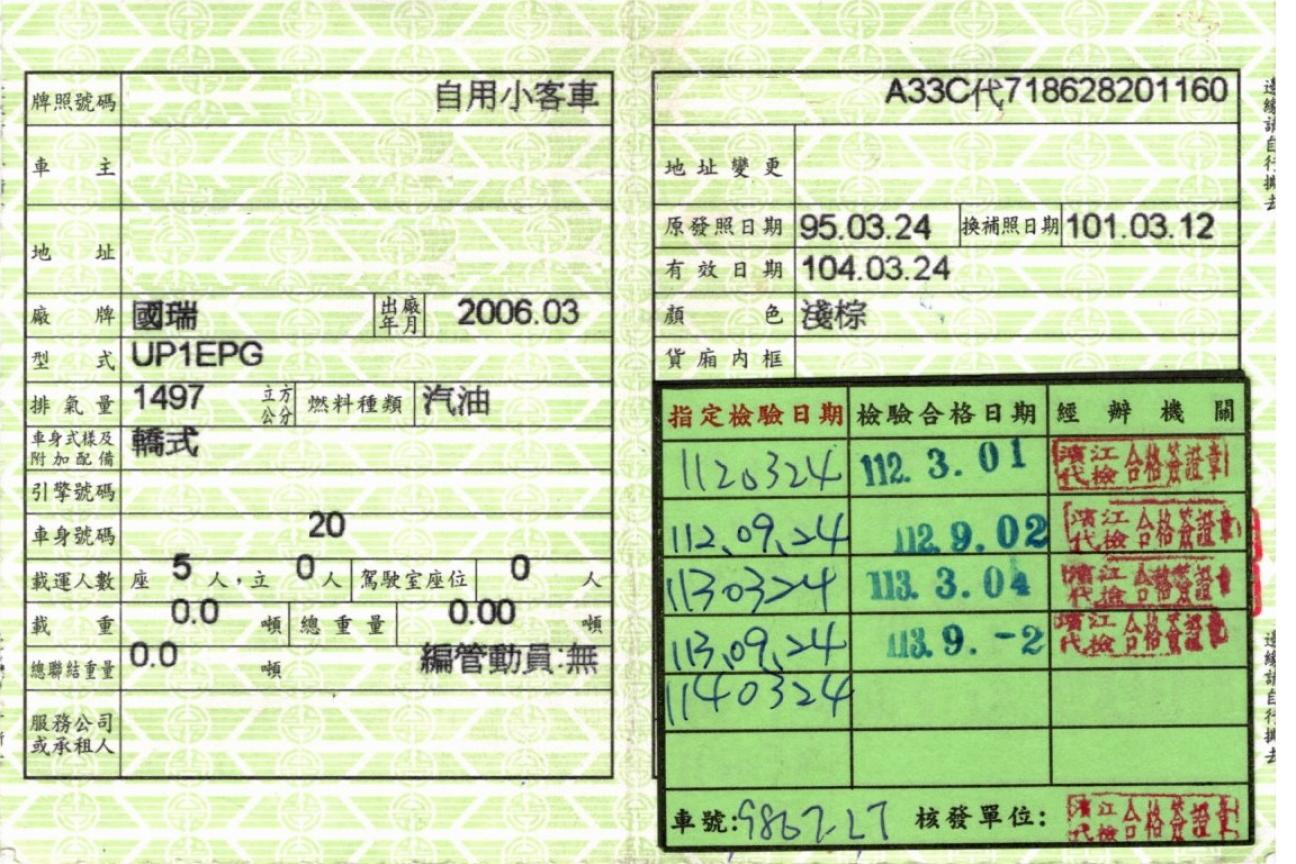 牌照號碼 自用小客車
車主
地址
廠牌 國瑞 出廠年月 2006.03
型式 UP1EPG
排氣量 1497 立方公分 燃料種類 汽油
車身式樣及附加配備 轎式
引擎號碼
車身號碼 20
載運人數 座 5 人，立 0 人 駕駛室座位 0 人
載重 0.0 噸 總重量 0.00 噸
總聯結重量 0.0 噸 編管動員:無
服務公司或承租人
A33C代718628201160
地址變更
原發照日期 95.03.24 換補照日期 101.03.12
有效日期 104.03.24
顏色 淺棕
貨廂內框
指定檢驗日期 檢驗合格日期 經辦機關
1120324 112. 3. 01 濱江代檢 合格簽證章
112.09.24 112. 9. 02 濱江代檢 合格簽證章
1130324 113. 3. 04 濱江代檢 合格簽證章
113.09.24 113. 9. -2 濱江代檢 合格簽證章
1140324
車號: 核發單位: 濱江代檢 合格簽證章
邊緣請自行撕去
邊緣請自行撕去